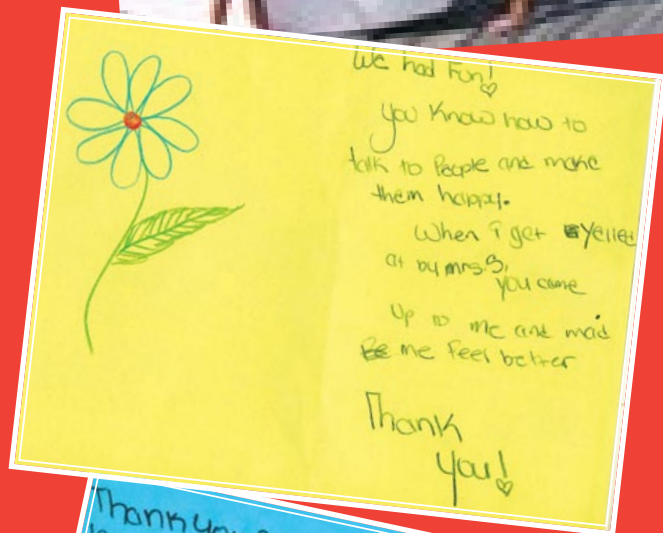 We had Fun!
you Know how to
talk to People and make
them happy.
When i get yelled
at by mrs. S,
you came
Up to me and maid
me Feel better
Thank
you!
Thank you